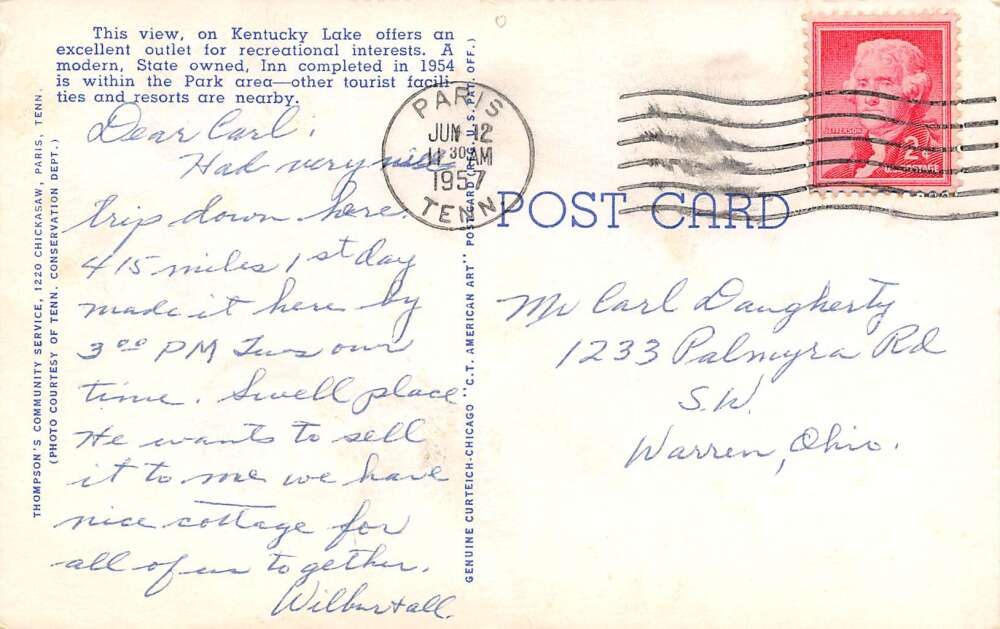 This view, on Kentucky Lake offers an
excellent outlet for recreational interests. A
modern, State owned, Inn completed in 1954
is within the Park area—other tourist facili-
ties and resorts are nearby.
Dear Carl;
Had very nice
trip down here.
415 miles 1st day
made it here by
3 00 PM Tues our
time. Swell place
He wants to sell
it to me we have
nice cottage for
all of us together.
Wilbur & all.
THOMPSON'S COMMUNITY SERVICE, 1220 CHICKASAW, PARIS, TENN.
(PHOTO COURTESY OF TENN. CONSERVATION DEPT.)
GENUINE CURTEICH-CHICAGO "C.T. AMERICAN ART" POST CARD (REG. U.S. PAT. OFF.)
PARIS
JUN 12
11 30 AM
1957
TENN
JEFFERSON
2¢
POSTAGE
POST CARD
Mr Carl Daugherty
1233 Palmyra Rd
S.W.
Warren, Ohio.